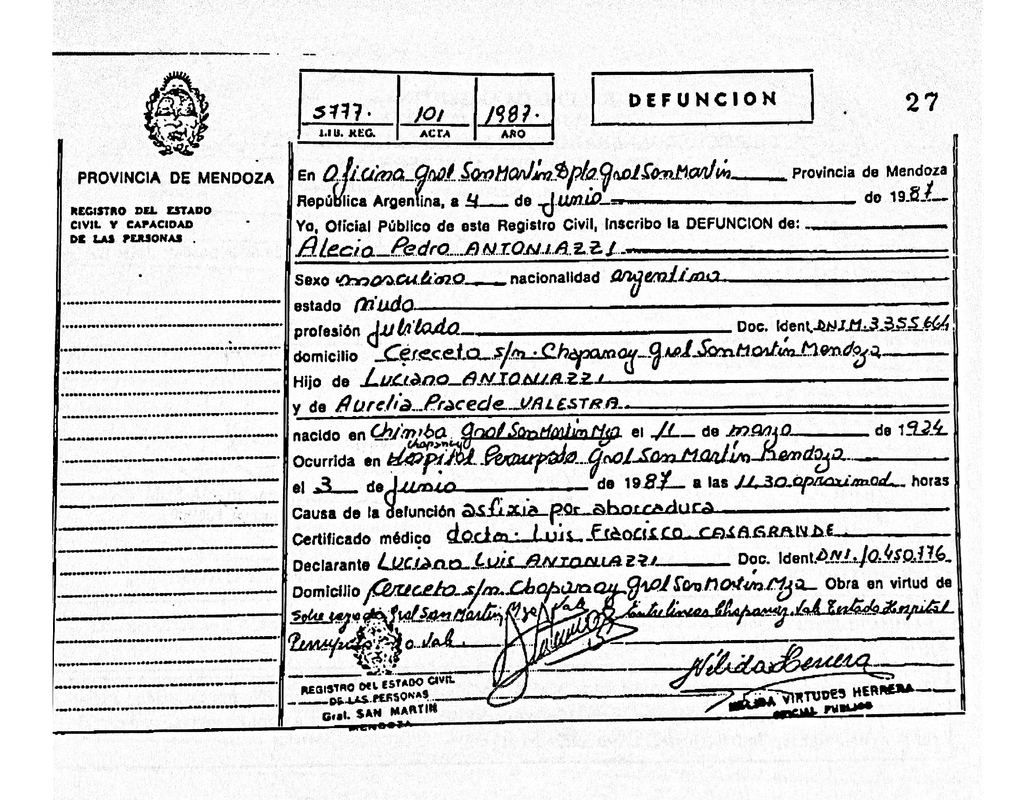 5777. 101 1987.
LIB. REG. ACTA AÑO
DEFUNCION
27
PROVINCIA DE MENDOZA
REGISTRO DEL ESTADO
CIVIL Y CAPACIDAD
DE LAS PERSONAS
En Oficina Gral San Martín Dpto Gral San Martín Provincia de Mendoza
República Argentina, a 4 de Junio de 1987
Yo, Oficial Público de este Registro Civil, Inscribo la DEFUNCION de:
Alecio Pedro ANTONIAZZI
Sexo masculino nacionalidad argentina
estado viudo
profesión Jubilado Doc. Ident. DNIM. 3355664
domicilio Cereceto s/n. Chapanay Gral San Martín Mendoza
Hijo de Luciano ANTONIAZZI
y de Aurelia Pracede VALESTRA
nacido en Chimba Gral San Martin Mza el 11 de marzo de 1924
Chapanay
Ocurrida en Hospital Perrupato Gral San Martín Mendoza
el 3 de Junio de 1987 a las 11.30 aproximad. horas
Causa de la defunción asfixia por ahorcadura
Certificado médico doctor. Luis Francisco CASAGRANDE.
Declarante Luciano Luis ANTONIAZZI Doc. Ident. DNI. 10.450.776
Domicilio Cereceto s/n. Chapanay Gral San Martín Mza Obra en virtud de
Sobre raspado Gral San Martin Mza Vale Entre lineas Chapanay. Vale Testado Hospital
Perrupato Vale.
Nélida Herrera
REGISTRO DEL ESTADO CIVIL
DE LAS PERSONAS
Gral. SAN MARTIN
MENDOZA
NELIDA VIRTUDES HERRERA
OFICIAL PUBLICO